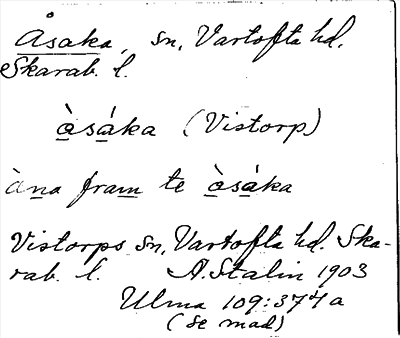 Åsaka, sn, Vartofta hd.
Skarab. l.
àsáka (Vistorp)
àna fram te àsáka
Vistorps sn, Vartofta hd. Ska-
rab. l. A. Stalin 1903
Ulma 109:374 a
(se mad)